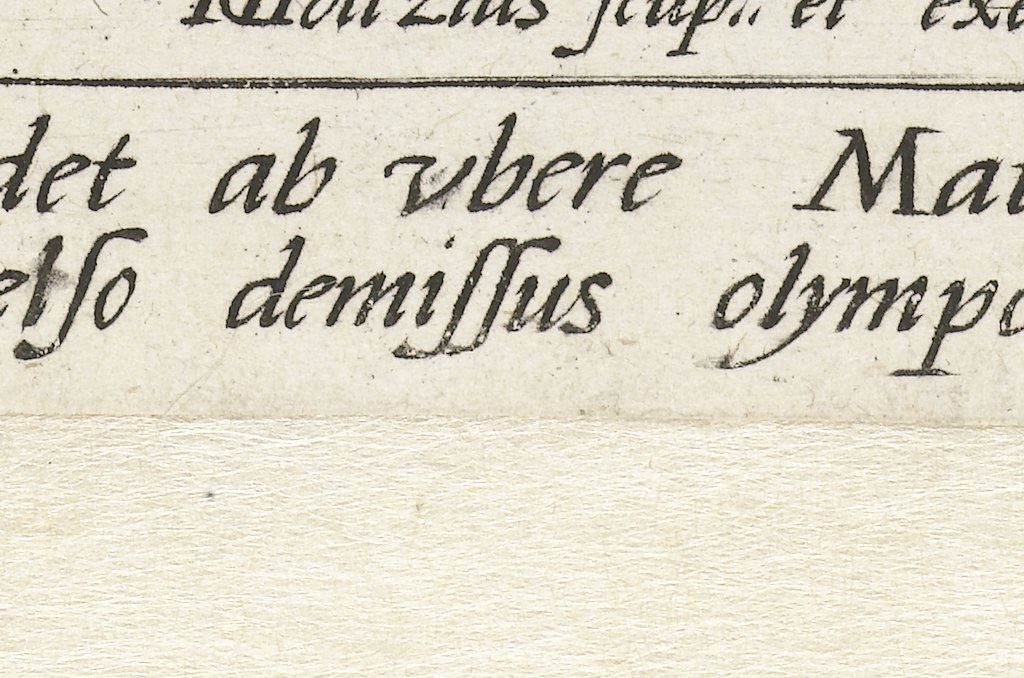 sculp. et
det ab vbere Mat
elſo demiſſus olympo